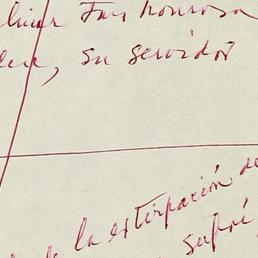 tan honrosa
su servidor
de la extirpación de
sufrí,